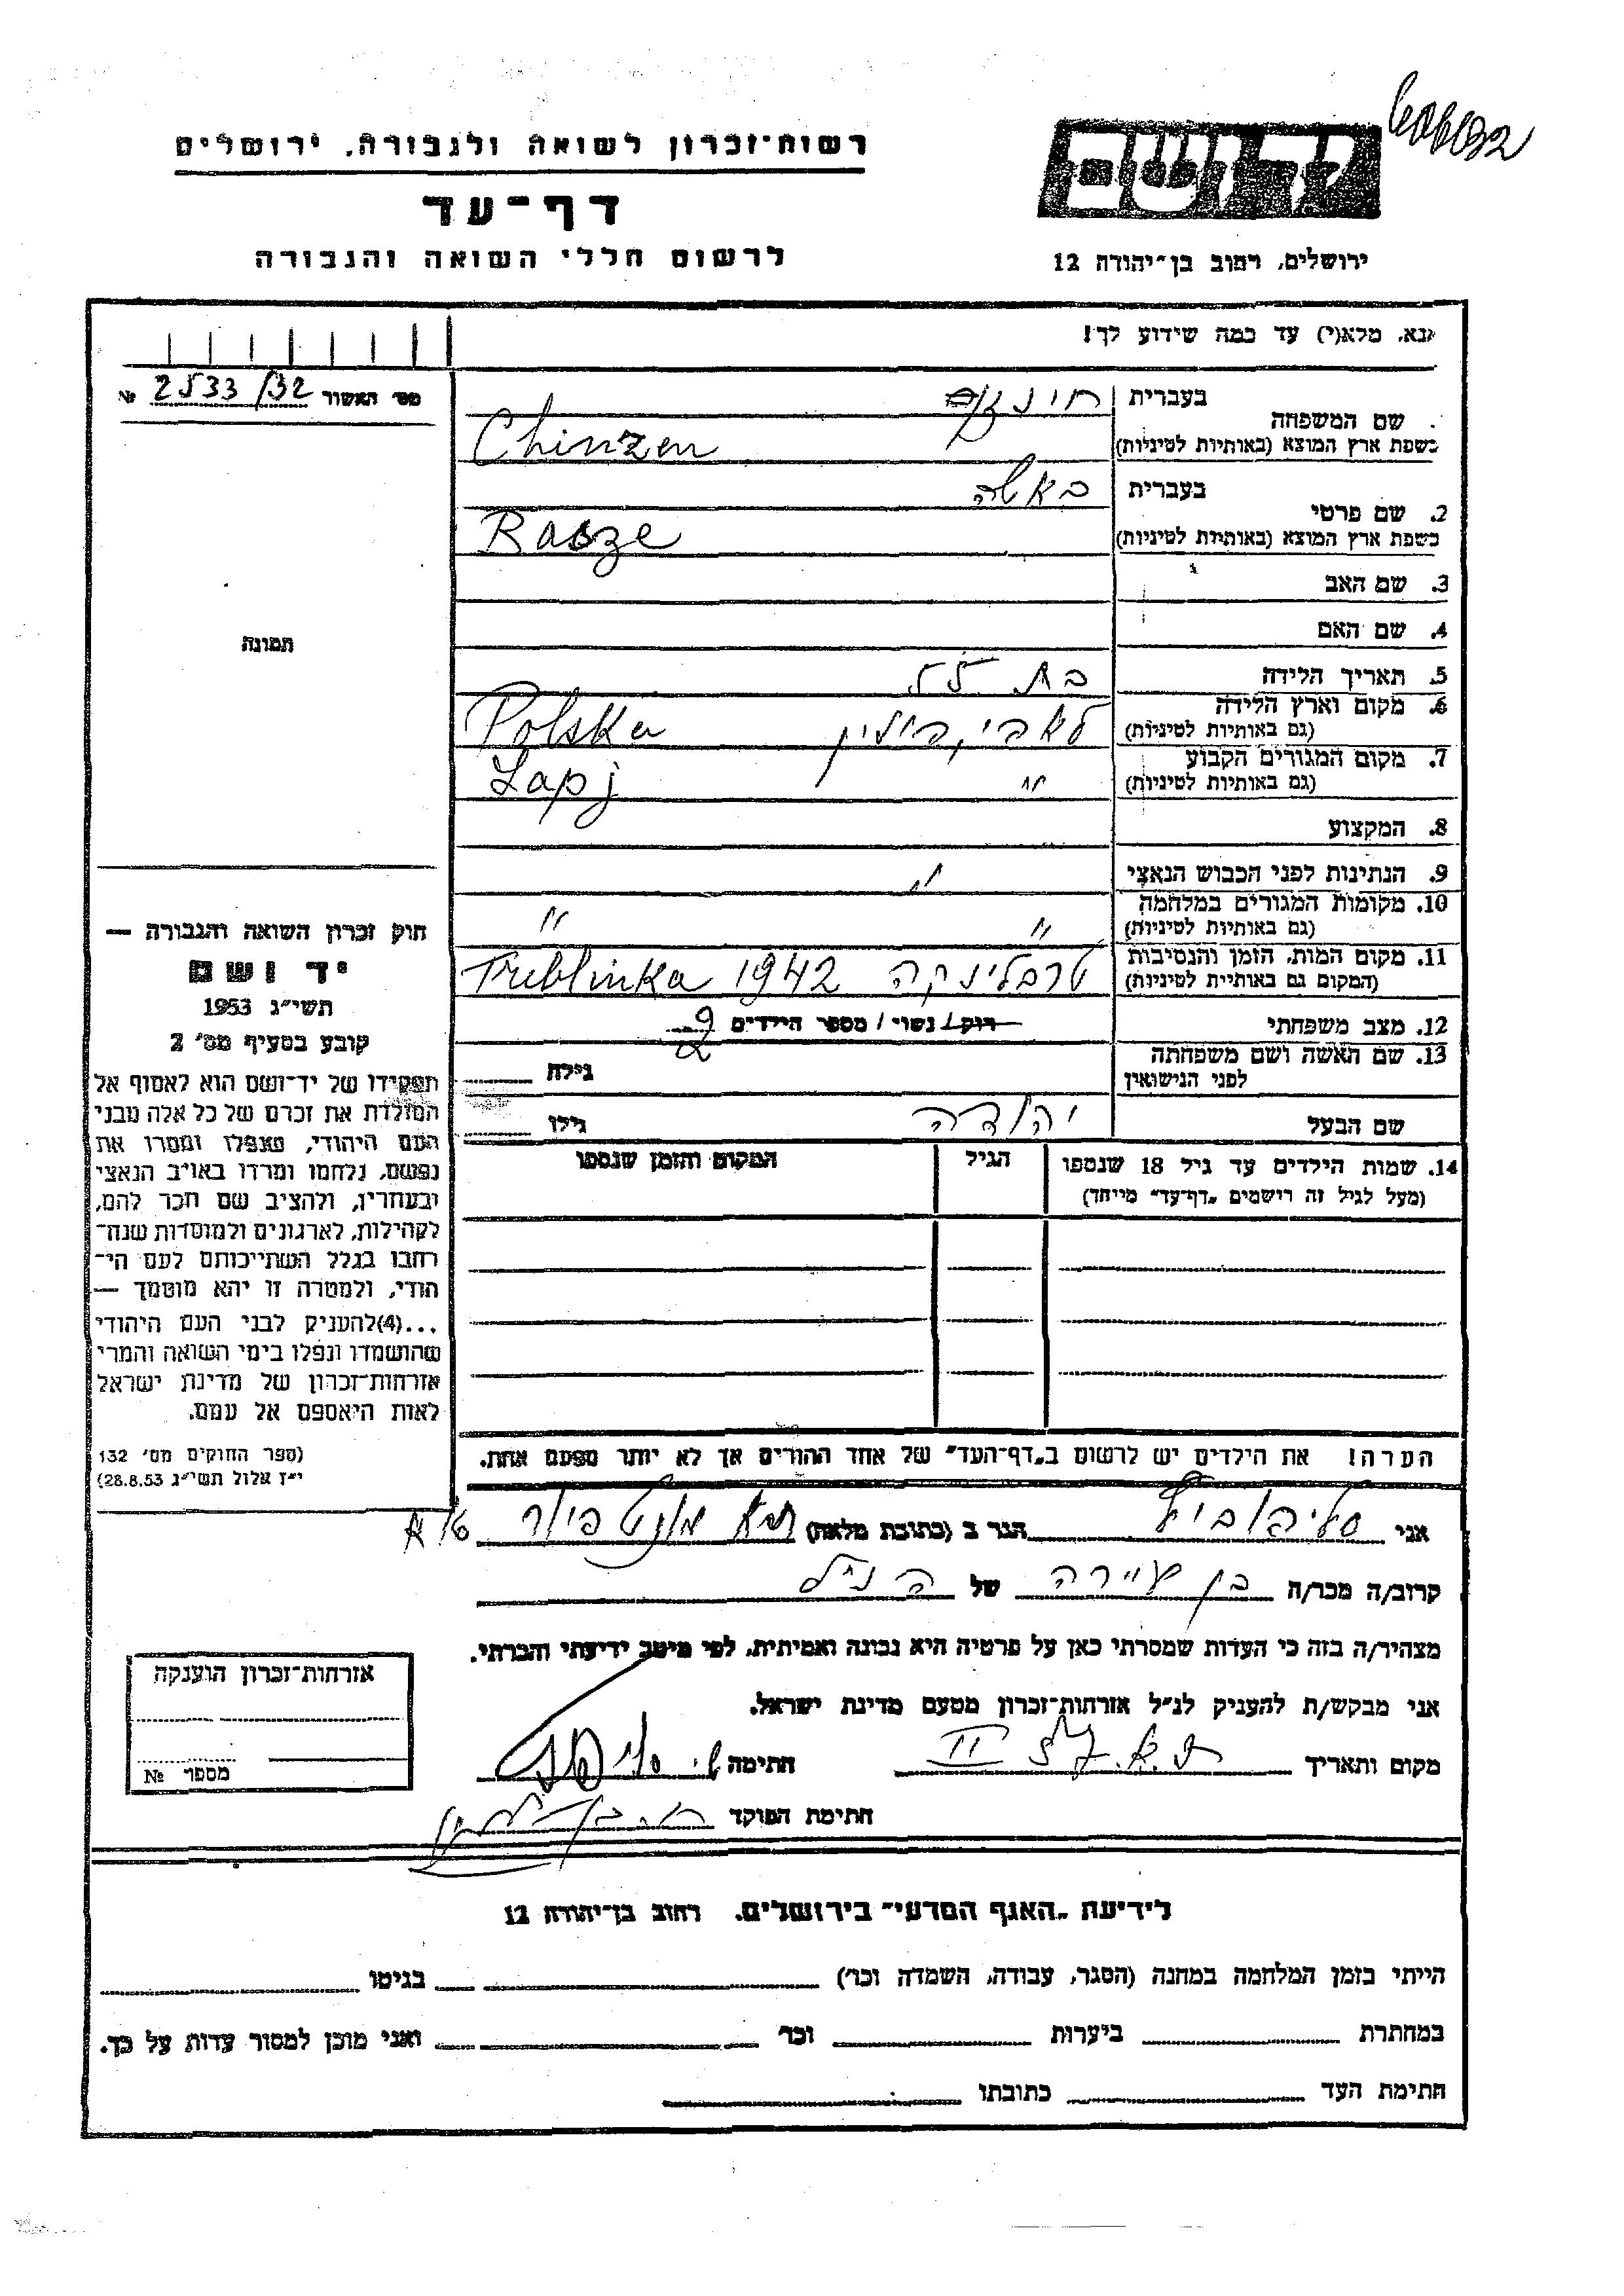 רשות־זכרון לשואה ולגבורה, ירושלים
דף־עד
לרשום חללי השואה והגבורה
יד ושם
ירושלים, רחוב בן־יהודה 12
נא, מלא(י) עד כמה שידוע לך!
מס׳ האשור 2533/32 №
שם המשפחה
בעברית
בשפת ארץ המוצא (באותיות לטיניות) Chinzen
2. שם פרטי
בעברית ראשה
בשפת ארץ המוצא (באותיות לטיניות) Rasze
3. שם האב
4. שם האם
5. תאריך הלידה בת
6. מקום וארץ הלידה
(גם באותיות לטיניות) Polska
7. מקום המגורים הקבוע
(גם באותיות לטיניות) " Lapj
8. המקצוע
9. הנתינות לפני הכבוש הנאצי "
10. מקומות המגורים במלחמה
(גם באותיות לטיניות) " "
11. מקום המות, הזמן והנסיבות
(המקום גם באותיות לטיניות) טרבלינקה 1942 Treblinka
12. מצב משפחתי רוק/ נשוי / מספר הילדים 2
13. שם האשה ושם משפחתה
לפני הנישואין
גילה
שם הבעל יהודה גילו
14. שמות הילדים עד גיל 18 שנספו
(מעל לגיל זה רישמים „דף־עד" מייחד)
הגיל
המקום והזמן שנספו
תמונה
חוק זכרון השואה והגבורה —
יד ושם
תשי״ג 1953
קובע בסעיף מס׳ 2
תפקידו של יד־ושם הוא לאסוף אל
המולדת את זכרם של כל אלה מבני
העם היהודי, שנפלו ומסרו את
נפשם, נלחמו ומרדו באויב הנאצי
ובעוזריו, ולהציב שם וזכר להם,
לקהילות, לארגונים ולמוסדות שנח־
רחבו בגלל השתייכותם לעם הי־
הודי, ולמטרה זו יהא מוסמך —
...(4)להעניק לבני העם היהודי
שהושמדו ונפלו בימי השואה והמרי
אזרחות־זכרון של מדינת ישראל
לאות היאספם אל עמם.
(ספר החוקים מס׳ 132
י״ז אלול תשי״ג 28.8.53)
הערה! את הילדים יש לרשום ב„דף־העד" של אחד ההורים אך לא יותר מפעם אחת.
אני הגר ב (כתובת מלאה)
קרוב/ה מכר/ה בן עיירה של הנ״ל
מצהיר/ה בזה כי העדות שמסרתי כאן על פרטיה היא נכונה ואמיתית, לפי מיטב ידיעתי והכרתי.
אני מבקש/ת להעניק לנ״ל אזרחות־זכרון מטעם מדינת ישראל.
מקום ותאריך חתימה
חתימת הפוקד
אזרחות־זכרון הוענקה
מספר №
לידיעת „האגף המדעי״ בירושלים, רחוב בן־יהודה 12
הייתי בזמן המלחמה במחנה (הסגר, עבודה, השמדה וכר׳) בגיטו
במחתרת ביערות וכר׳ ואני מוכן למסור עדות על כך.
חתימת העד כתובתו